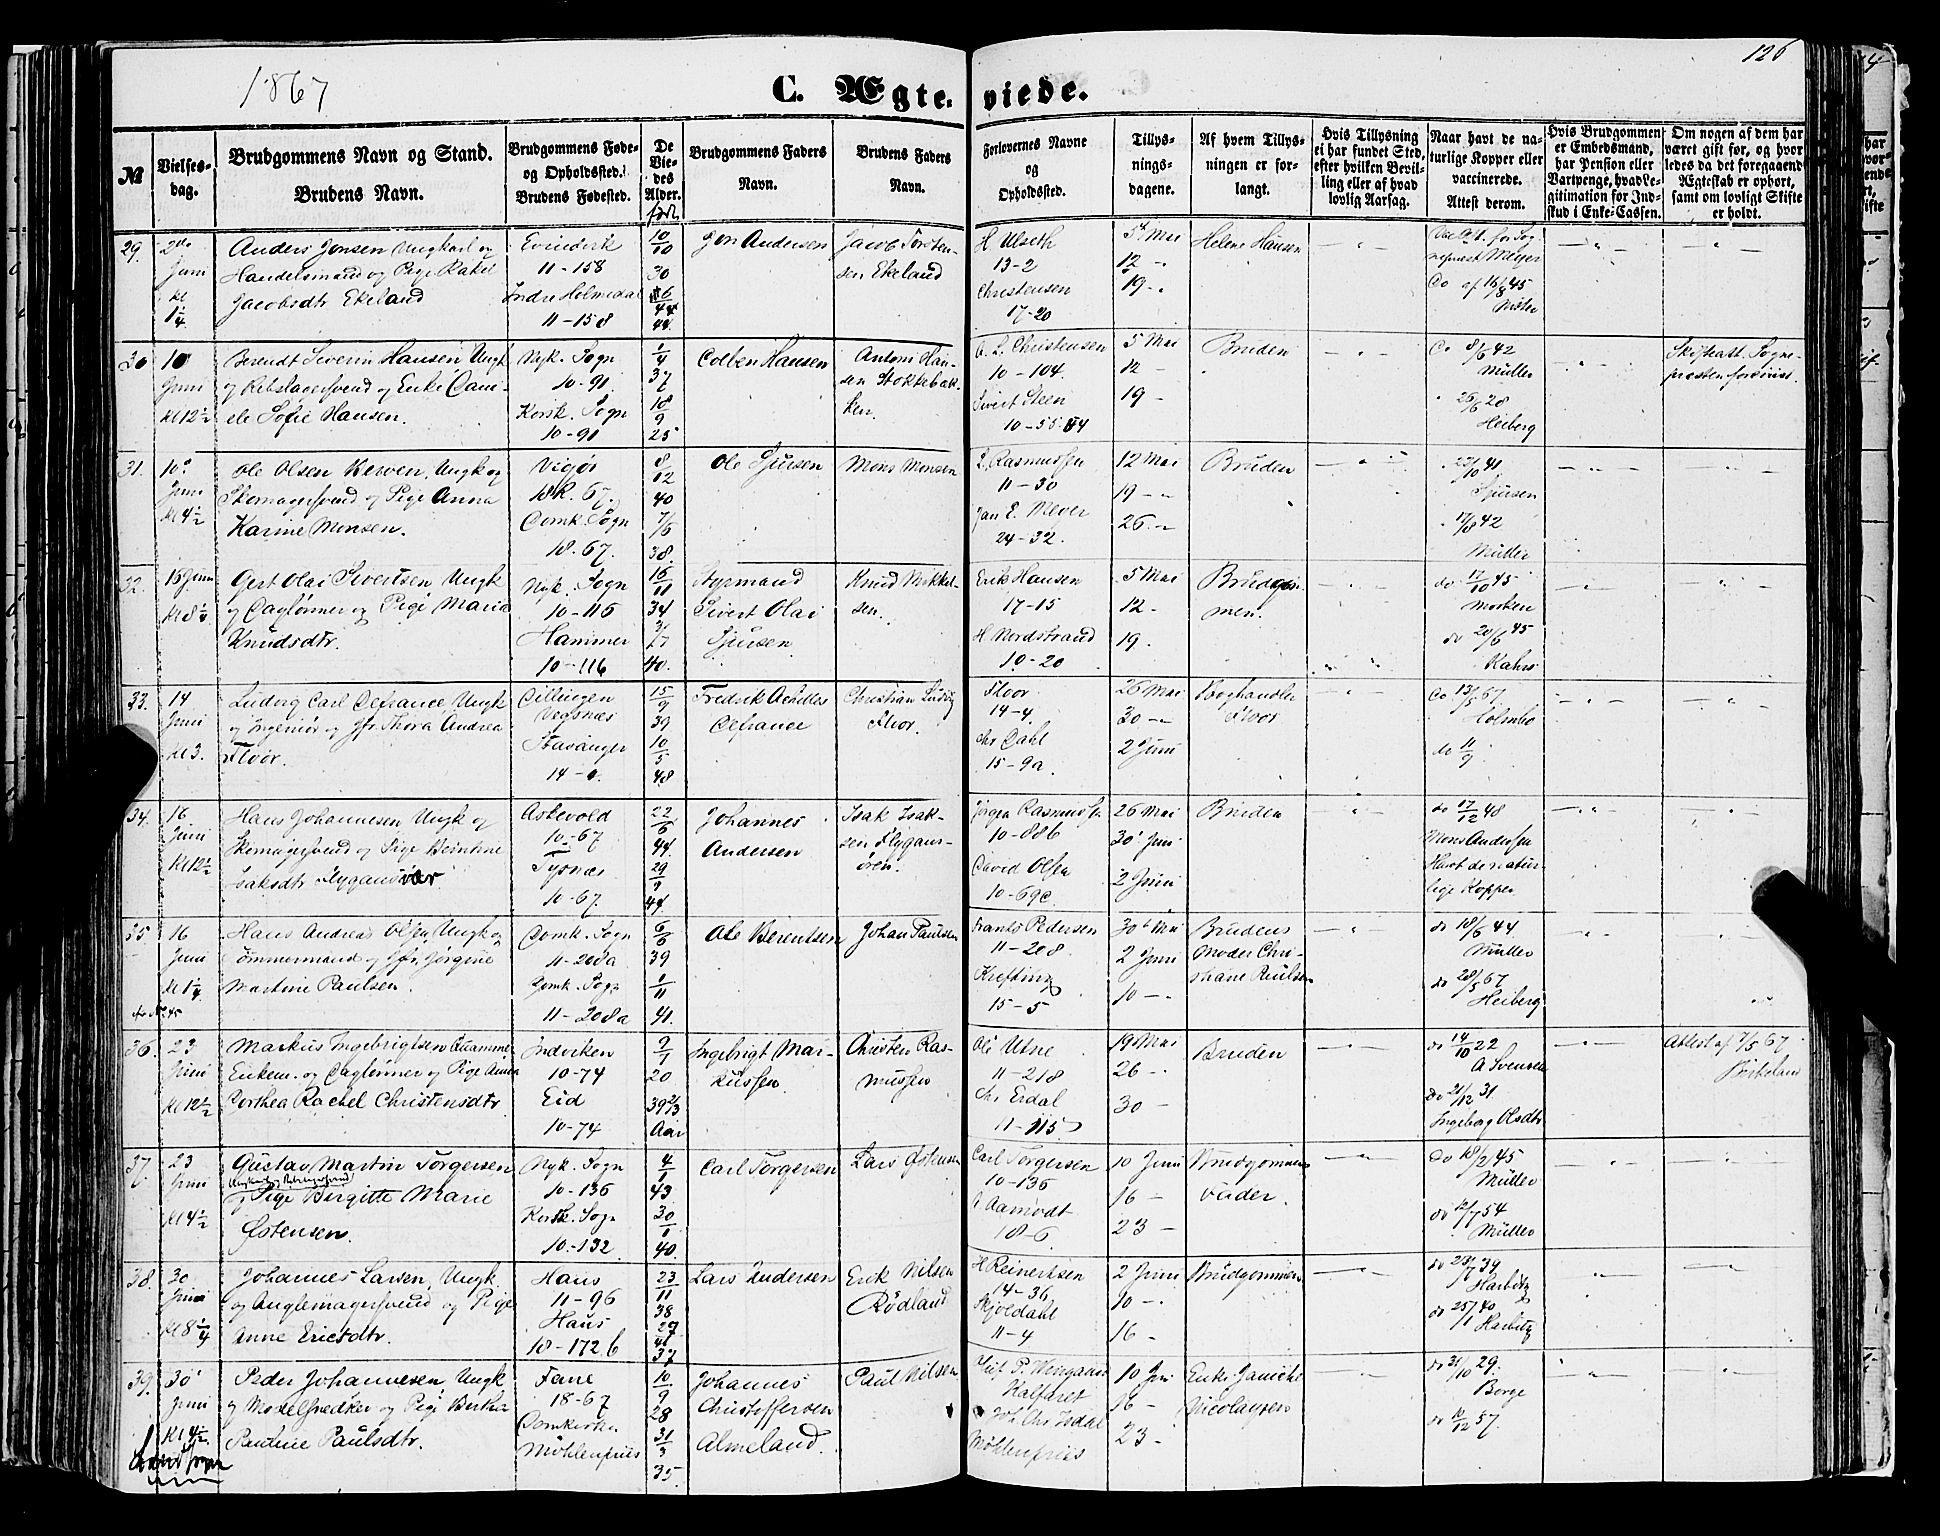 1867
C. Ægte-
viede.
126
№
Vielses-
dag.
Brudgommens Navn og Stand.
Brudens Navn.
Brudgommens Føde-
og Opholdssted.
Brudens Fødested.
De
Vie-
des
Alder.
født
Brudgommens Faders
Navn.
Brudens Faders
Navn.
Forlovernes Navne
og
Opholdssted.
Tillys-
nings-
dagene.
Af hvem Tillys-
ningen er for-
langt.
Hvis Tillysning
ei har fundet Sted,
efter hvilken Bevil-
ling eller af hvad
lovlig Aarsag.
Naar havt de na-
turlige Kopper eller
vaccinerede.
Attest derom.
Hvis Brudgommen
er Embedsmand,
har Pension eller
Vartpenge, hvad Le-
gitimation for Ind-
skud i Enke-Cassen.
Om nogen af dem har
været gift før, og hvor
ledes da det foregaaend
Ægteskab er ophørt,
samt om lovligt Skifte
er holdt.
29.
Juni
kl
Anders Jensen Ungkarl og
Handelsmand og Pige Rakel
Jacobsdtr Ekeland
Evindvik
11-158
Indre Holmedal
11-158
10/10
30
Jon Andersen
Jacob Torsten-
sen Ekeland
H Ulseth
13-2
Christensen
17-20
5 Mai
12 -
19 -
Helene Hansen
Meyer
Do af 16/8 45
30
10
Juni
kl 12½
Berendt Severin Hansen, Ungk
og Rebslagersvend og Enke Dani-
ele Sofie Hansen.
Nyk. Sogn
10-91
Korsk. Sogn
10-91
1/4
37
18/9
25
Colben Hansen
Antoni Han-
sen Stokkebak-
ken.
Christensen
10-104.
Sivert Steen
10-55.
5 Mai
12 -
19 -
Bruden
Do 8/6 42
Müller
25/6 28
Heiberg
Skifteatt. Sogne-
præsten forevist.
31.
10
Juni
kl 4½
Ole Olsen Berven, Ungk og
Skomagersvend og Pige Anna
Karine Monsen.
Vigør
18 R. 67.
Domk. Sogn
18-67.
8/12
40
7/6
38.
Ole Sjursen
Mons Monsen
Rasmussen
11-30
Jan E. Meyer
24-32.
12 Mai
19 -
26 -
Bruden
23/10 41
Sjursen
17/8 42
Müller
32.
16 Juni
Gert Olai Sivertsen Ungk
og Dagl­ønner og Pige Maria
Knudsdtr.
Nyk. Sogn
10-116
Hammer
10-116
16/11
34
40.
Styrmand
Sivert Olai
Sjursen
Knud Mikkel-
sen.
Erik Hansen
17-15
H Nordstrand
10-20
5 Mai
12 -
19.
Brudgom-
men.
do 17/10 45
Morken
do 20/6 45
Kahrs
33.
14
Juni
kl 3.
Ludvig Carl Defrance, Ungk
og Ingeniør og Jfr. Thora Andrea
Floor.
Dillingen
Stavanger
15/9
39
10/5
48
Fredrik Achilles
Defrance
Christian Ludvig
Floor.
Floor
14-4.
Chr Dahl
15-9a.
26 Mai
30 -
2 Juni
Boghandler
Floor
Do 13/5 67
Holmbo
do 11/9
34.
16
Juni
kl 12½
Hans Johannesen Ungk og
Skomagersvend og Pige Berntine
Isaksdtr
Askevold
10-67
Tysnæs
10-67.
22/6
44.
29/9
44.
Johannes
Andersen
Isak Isak-
sen Flygans-
Jørgen Rasmussen
10-886
David Olsen
10-69c.
26 Mai
30 Juni
2 Juni
Bruden
do 17/12 48
Mons Andersen
Havt de natur-
lige Kopper
35
16
Juni
Hans Andreas Olsen, Ungk og
Tømmermand og Jfr. Jørgine
Martine Paulsen.
Domk. Sogn
11-208a
Domk. Sogn
11-208a
6/6
39
1/11
41.
Ole Berentsen
Johan Paulsen
Frants Pedersen
11-208
Krefting
15-5
30 Mai
2 Juni
10 -
Brudens
Moder Chri-
stiane Paulsen
do 18/6 44
Müller
do 28/5 67
Heiberg
36.
23
Juni
kl 12½
Markus Ingebrigtsen Quamme
Enkem. og Dagl­ønner og Pige Anna
Dorthea Rachel Christensdtr
Indviken
10-74
Eid
10-74
9/1
20
Aar
Ingebrigt Mar-
kussen.
Christen Ras-
mussen
Ole Utne
11-218
Chr. Erdal
11-115
19 Mai
26 -
30 -
Bruden
do 14/10 22
A Svensen
do 21/12 31
Ingeborg Olsdtr
Attest af 7/5 67
Birkeland
37.
23
Juni
kl 4½
Gustav Martin Torgersen
og Pige Birgitte Marie
Østensen.
Nyk. Sogn
10-136
Korsk. Sogn
10-132
4/1
43.
30/1
40.
Carl Torgersen
Lars Østensen
Carl Torgersen
10-136
Aamodt
18-6.
10 Juni
16 -
23 -
Brudgommens
Fader.
do 18/2 45
Müller
do 12/7 54
Müller
38.
30
Juni
kl 8¼
Johannes Larsen, Ungk
og Anglemagersvend og Pige
Anne Ericsdtr.
Haus
11-96
Haus
18-172 b
23/11
38
37
Lars Andersen
Erik Nilsen
Rødland
H Reinertsen
14-36
Skjoldahl
11-4
2 Juni
10 -
16 -
Brudgommen
Harbitz
Harbitz
39.
30
Juni
kl 4½
Peder Johannesen Ungk
og Modelsnedker og Pige Berthe
Pauline Paulsdtr.
Fane
18-67
Domkirken
Möhlenpriis
10/9
28
31/3
35.
Johannes
Christoffersen
Almeland.
Paul Nilsen
Wingaard
Kalfaret
Joh. Chr. Isdal
Möhlenpriis
10 Juni
16 -
23 -
Enke Janicke
Nicolaysen
do 31/10 29.
Borge
do 10/12 57.